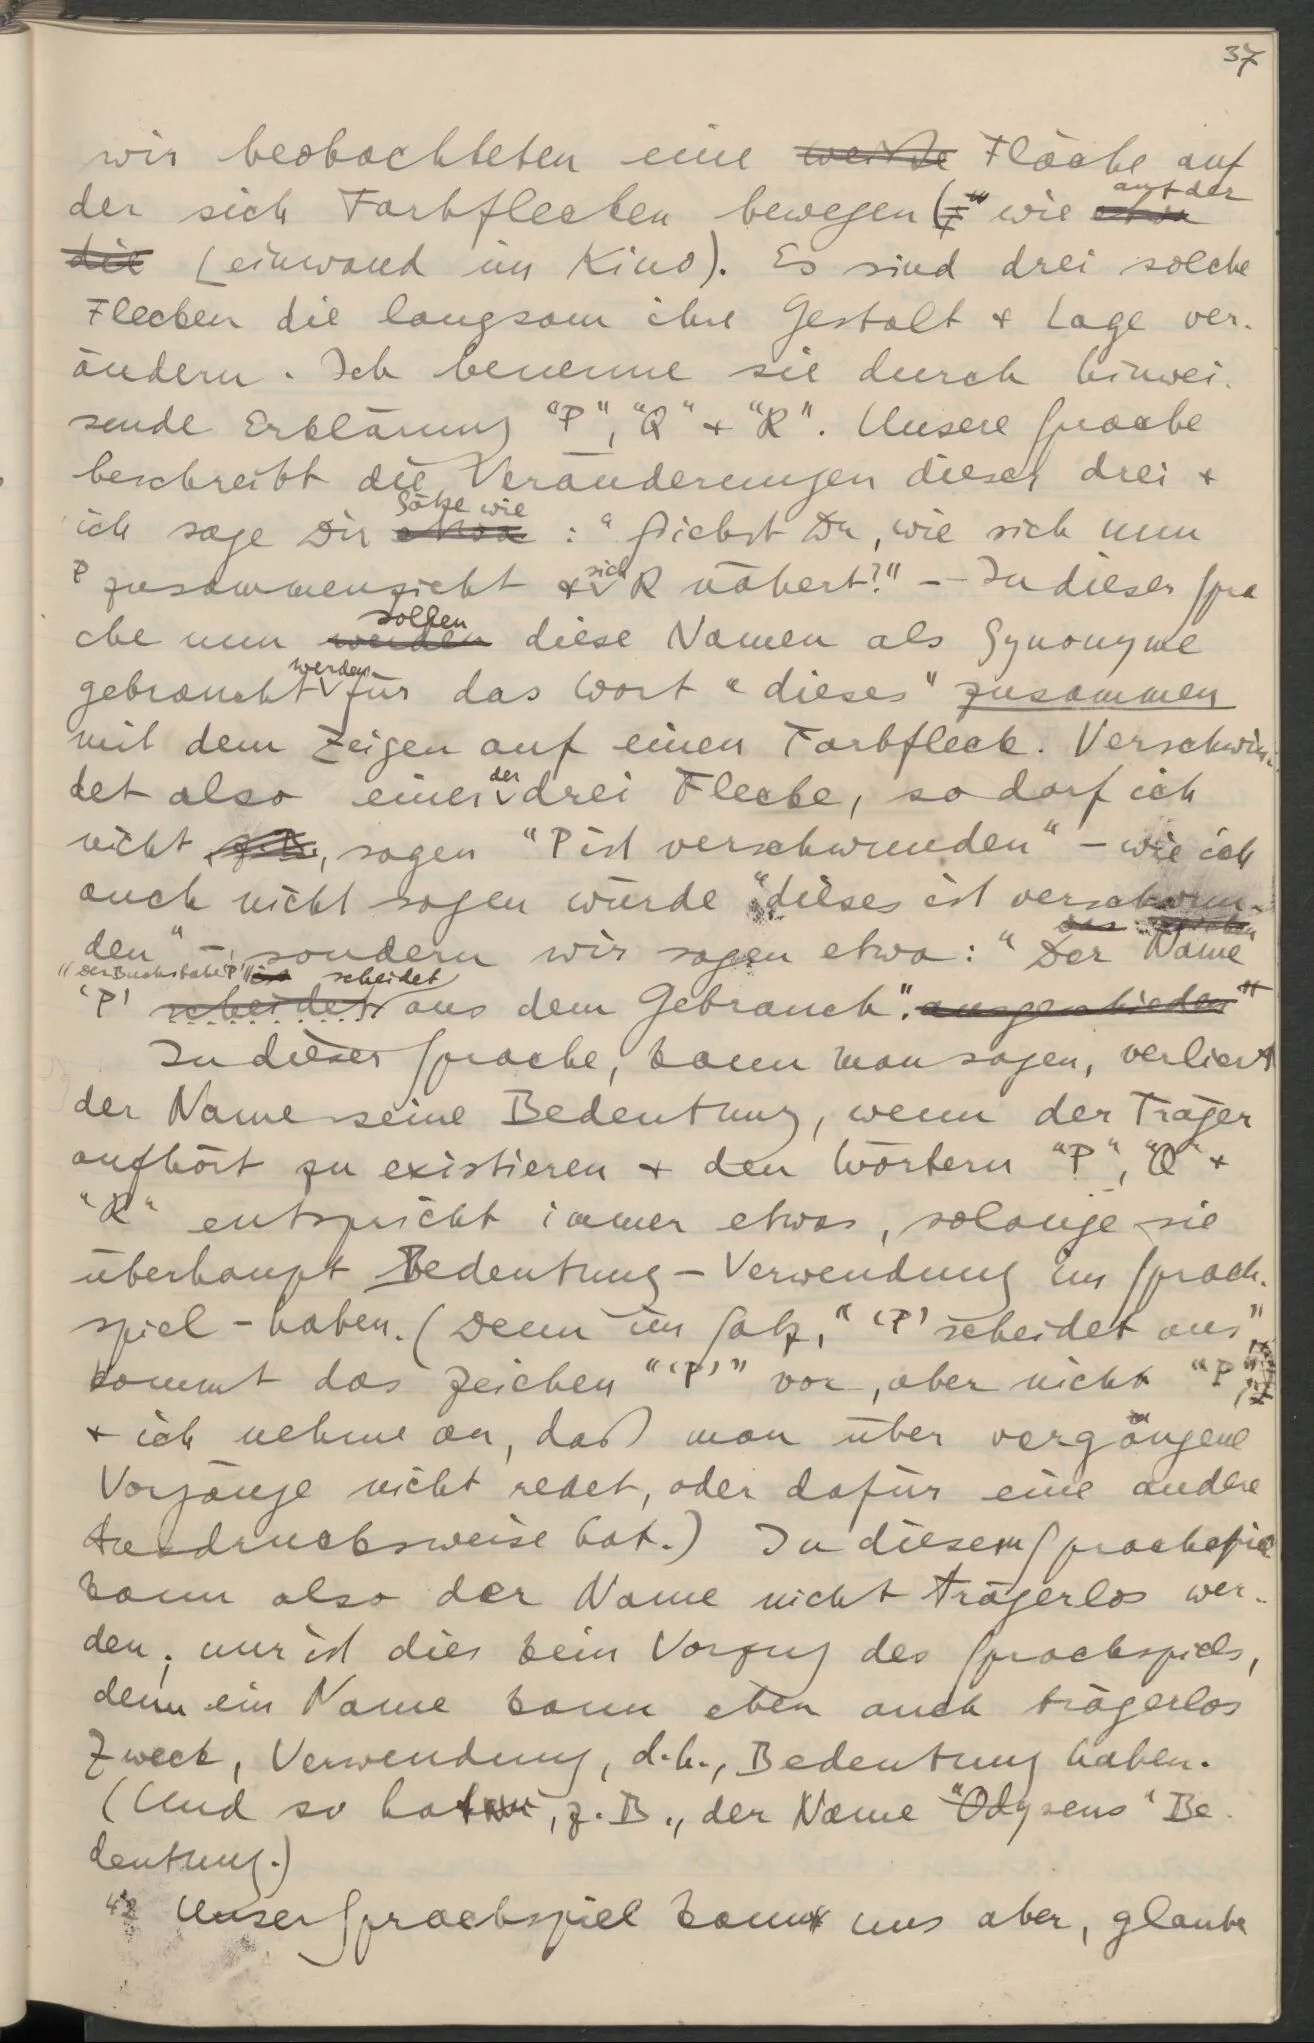 37
wir beobachteten eine weiße Fläche auf
der sich Farbflecken bewegen ( wie auf der
die Leinwand im Kino). Es sind drei solche
Flecken die langsam ihre Gestalt + Lage ver-
ändern. Ich benenne sie durch hinwei-
sende Erklärung "P", "Q" + "R". Unsere Sprache
beschreibt die Veränderungen dieser drei +
ich sage Dir etwa Sätze wie : "Siehst Du, wie sich nun
P zusammenzieht + sich R nähert?" – In dieser Spra
che nun werden sollen diese Namen als Synonyme
gebraucht werden für das Wort "dieses" zusammen
mit dem Zeigen auf einen Farbfleck. Verschwin-
det also einer der drei Flecke, so darf ich
nicht z.B., sagen "P ist verschwunden" – wie ich
auch nicht sagen würde "dieses ist verschwun-
den" –, sondern wir sagen etwa: "Der Name das Zeichen
"Der Buchstabe 'P'" ist scheidet
'P' scheidet aus dem Gebrauch". ausgeschieden"
In dieser Sprache, kann man sagen, verliert
der Name seine Bedeutung, wenn der Träger
aufhört zu existieren + den Wörtern "P", "Q" +
"R" entspricht immer etwas, solange sie
überhaupt Bedeutung – Verwendung im Sprach-
spiel – haben. (Denn im Satz, "'P' scheidet aus",
kommt das Zeichen "'P'" vor, aber nicht "P",
+ ich nehme an, daß man über vergangene
Vorgänge nicht redet, oder dafür eine andere
Ausdrucksweise hat.) In diesem Sprachspiel
kann also der Name nicht trägerlos wer-
den; nur ist dies kein Vorzug des Sprachspiels,
denn ein Name kann eben auch trägerlos
Zweck, Verwendung, d.h., Bedeutung haben.
(Und so hat, z.B., der Name "Odyseus" Be-
deutung.)
42 Unser Sprachspiel kann uns aber, glaube